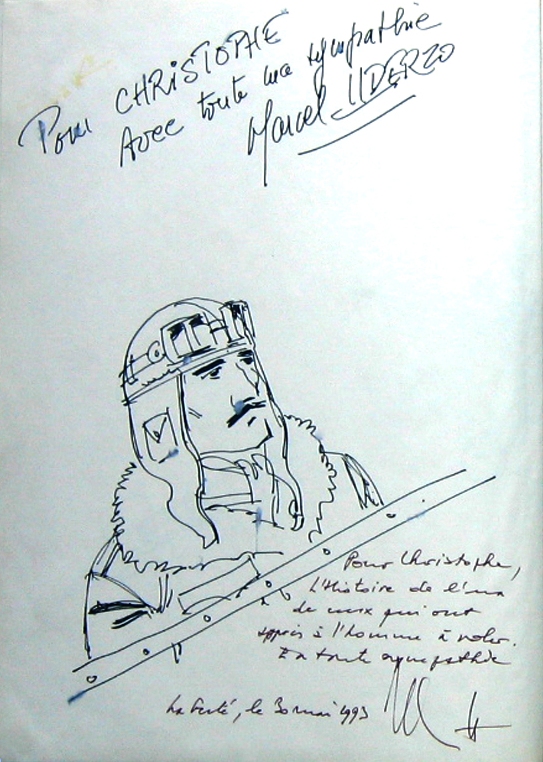 Pour CHRiSTOPHE
Avec toute ma sympathie
Marcel UDERZO
Pour Christophe,
L'Histoire de l'un
de ceux qui ont
appris à l'homme à voler.
En toute sympathie
La Ferté, le 30 mai 1993